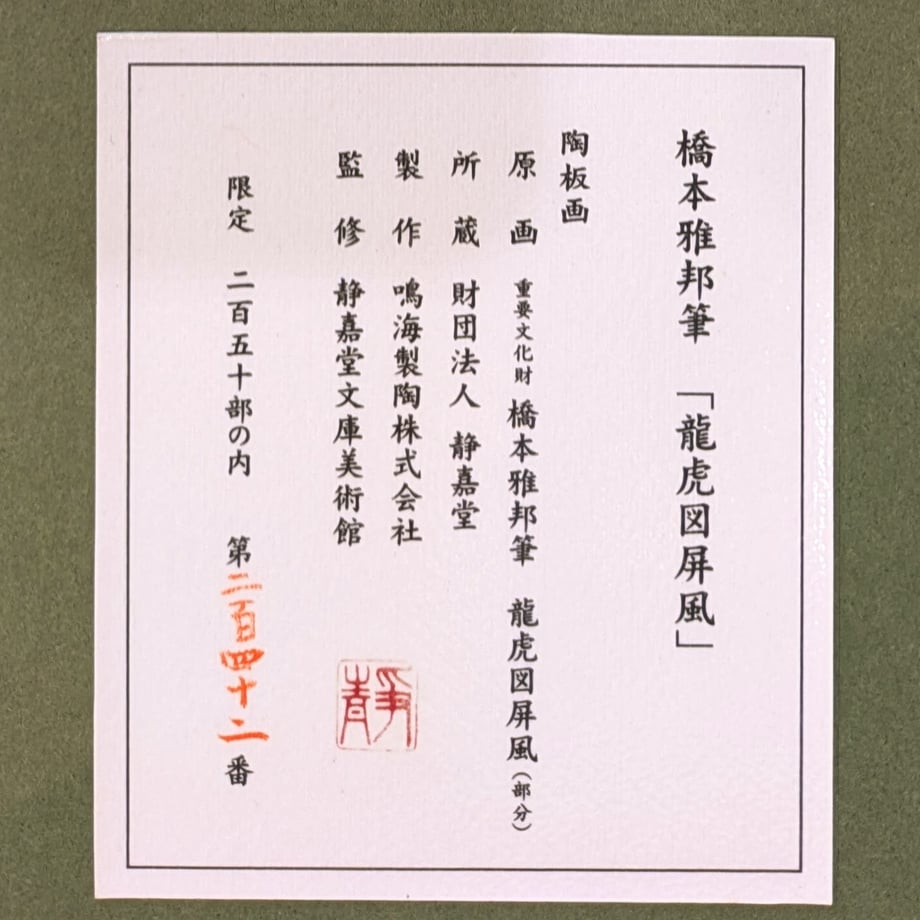 橋本雅邦筆 「龍虎図屏風」
陶板画
原画 重要文化財 橋本雅邦筆 龍虎図屏風(部分)
所蔵 財団法人 静嘉堂
製作 鳴海製陶株式会社
監修 静嘉堂文庫美術館
静
限定 二百五十部の内 第二百四十二番